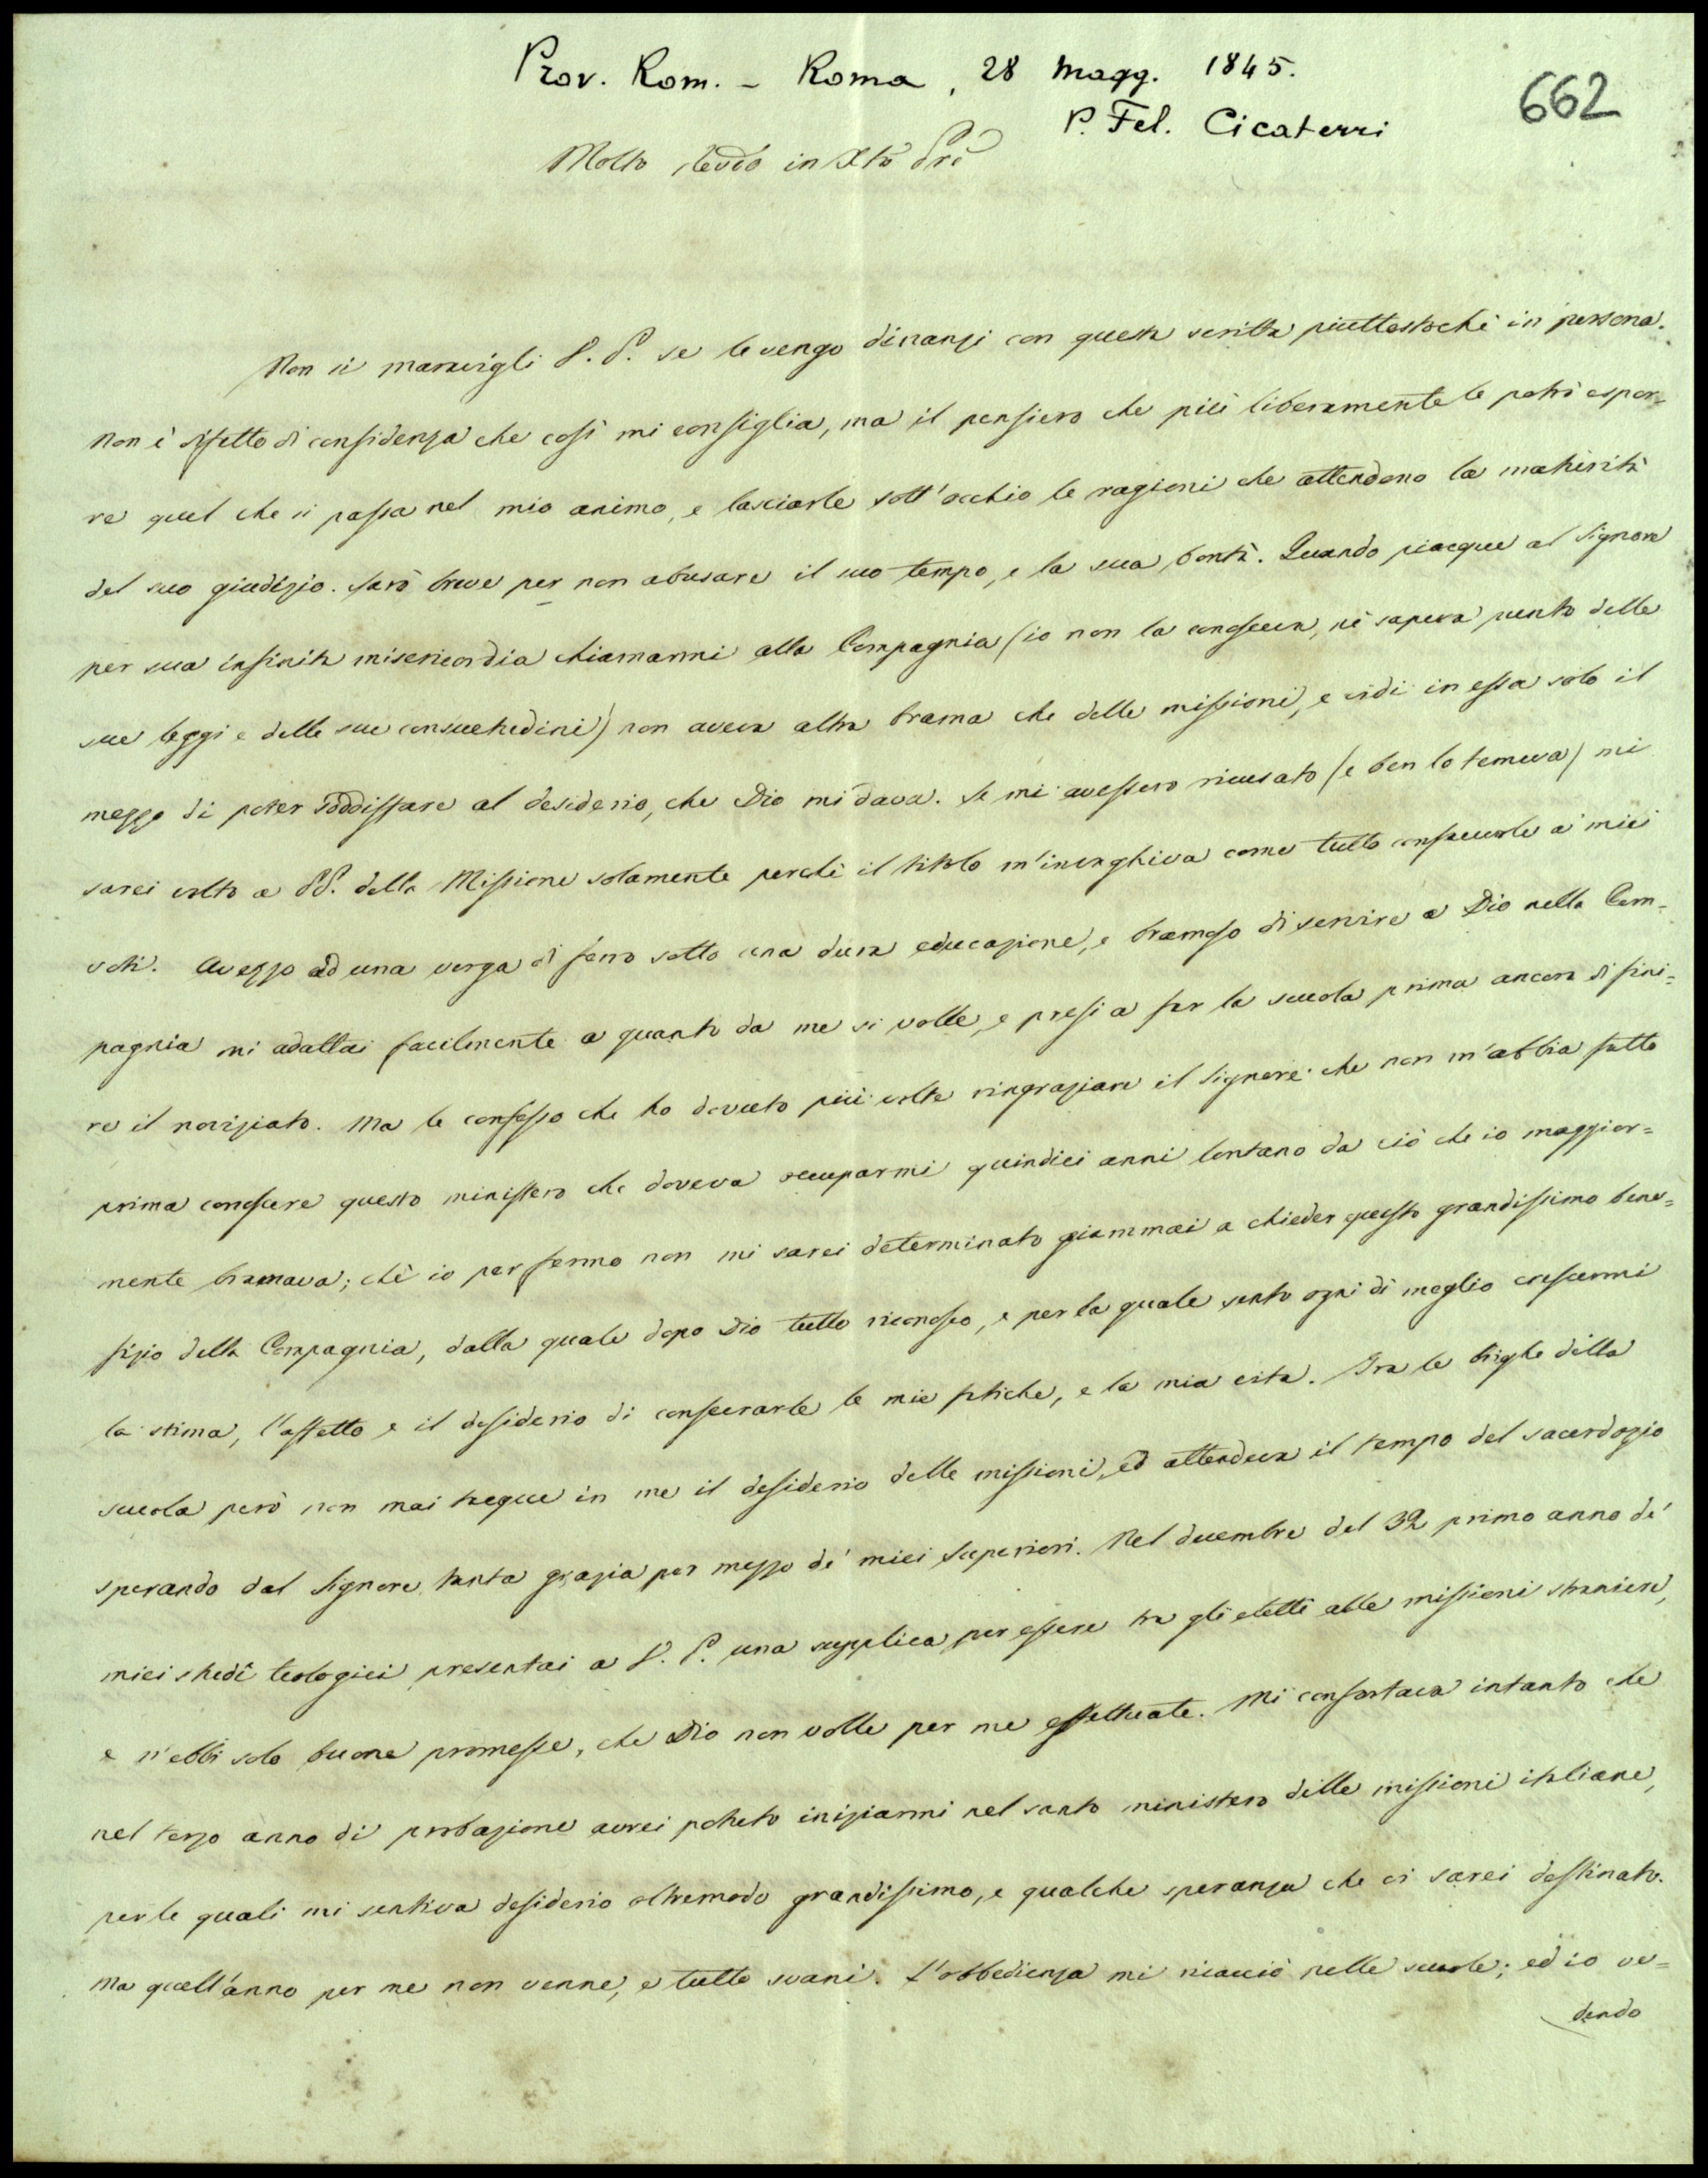 Prov. Rom. - Roma, 28 Magg. 1845.
662
P. Fel. Cicaterri
Molto Revdo in Xto Pre
Non si maravigli V. P. se le vengo dinanzi con questa scritta piuttostochè in persona.
Non è difetto di confidenza che così mi consiglia, ma il pensiero che più liberamente le potrò espor=
re quel che si passa nel mio animo, e lasciarle sott'occhio le ragioni che attendono la maturità
del suo giudizio. Sarò breve per non abusare il suo tempo, e la sua bontà. Quando piacque al Signore
per sua infinita misericordia chiamarmi alla Compagnia (io non la conosceva, nè sapeva punto delle
sue leggi e delle sue consuetudini) non aveva altra brama che delle missioni, e vidi in essa solo il
mezzo di poter soddisfare al desiderio, che Dio mi dava. Se mi avessero ricusato (e ben lo temeva) mi
sarei volto a PP. della Missione solamente perchè il titolo m'invaghiva come tutto consecuole a' miei
voti. Avezzo ad una verga di ferro sotto una dura educazione, e bramoso di servire a Dio nella Com=
pagnia mi adattai facilmente a quanto da me si volle, e presi a far la scuola prima ancora di fini=
re il noviziato. Ma le confesso che ho dovuto più volte ringraziare il Signore che non m'abbia fatto
prima conoscere questo ministero che doveva occuparmi quindici anni lontano da ciò che io maggior=
mente bramava; chè io per fermo non mi sarei determinato giammai a chieder questo grandissimo bene=
fizio della Compagnia, dalla quale dopo Dio tutto riconosco, e per la quale sento ogni dì meglio crescermi
la stima, l'affetto e il desiderio di consecrarle le mie fatiche, e la mia vita. Tra le brighe della
scuola però non mai tacque in me il desiderio delle missioni, ed attendeva il tempo del sacerdozio
sperando dal Signore tanta grazia per mezzo de' miei Superiori. Nel decembre del 32 primo anno de'
miei studi teologici presentai a V. P. una supplica per essere tra gli eletti alle missioni straniere,
e n'ebbi solo buone promesse, che Dio non volle per me effettuate. Mi confortava intanto che
nel terzo anno di probazione avrei potuto iniziarmi nel santo ministero delle missioni italiane,
per le quali mi sentiva desiderio oltremodo grandissimo, e qualche speranza che ci sarei destinato.
Ma quell'anno per me non venne, e tutto svanì. L'obbedienza mi ricacciò nelle scuole; ed io ve=
dendo